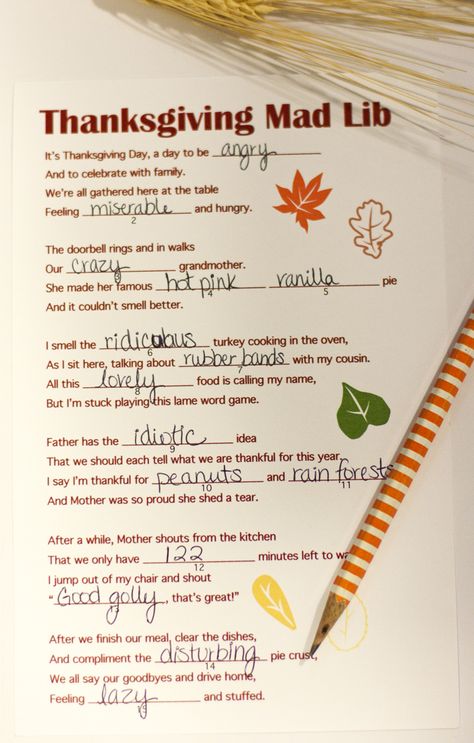 Thanksgiving Mad Lib
It's Thanksgiving Day, a day to be angry
And to celebrate with family.
We're all gathered here at the table
Feeling miserable and hungry.
2
The doorbell rings and in walks
Our crazy grandmother.
3
She made her famous hot pink vanilla pie
4 5
And it couldn't smell better.
I smell the ridiculous turkey cooking in the oven,
6
As I sit here, talking about rubber bands with my cousin.
7
All this lovely food is calling my name,
8
But I'm stuck playing this lame word game.
Father has the idiotic idea
9
That we should each tell what we are thankful for this year.
I say I'm thankful for peanuts and rain forests
10 11
And Mother was so proud she shed a tear.
After a while, Mother shouts from the kitchen
That we only have 122 minutes left to
12
I jump out of my chair and shout
"Good golly, that's great!"
13
After we finish our meal, clear the dishes,
And compliment the disturbing pie crust,
14
We all say our goodbyes and drive home,
Feeling lazy and stuffed.
15